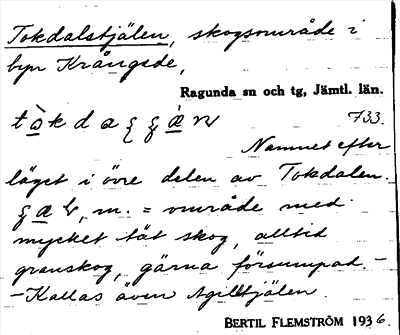 Tokdalstjälen, skogsområde i
byn Krångede,
Ragunda sn och tg, Jämtl. län.
733.
Namnet efter
läget i övre delen av Tokdalen.
m. = område med
mycket tät skog, alltid
granskog, gärna försumpad. -
- Kallas även Agilltjälen.
BERTIL FLEMSTRÖM 1936.